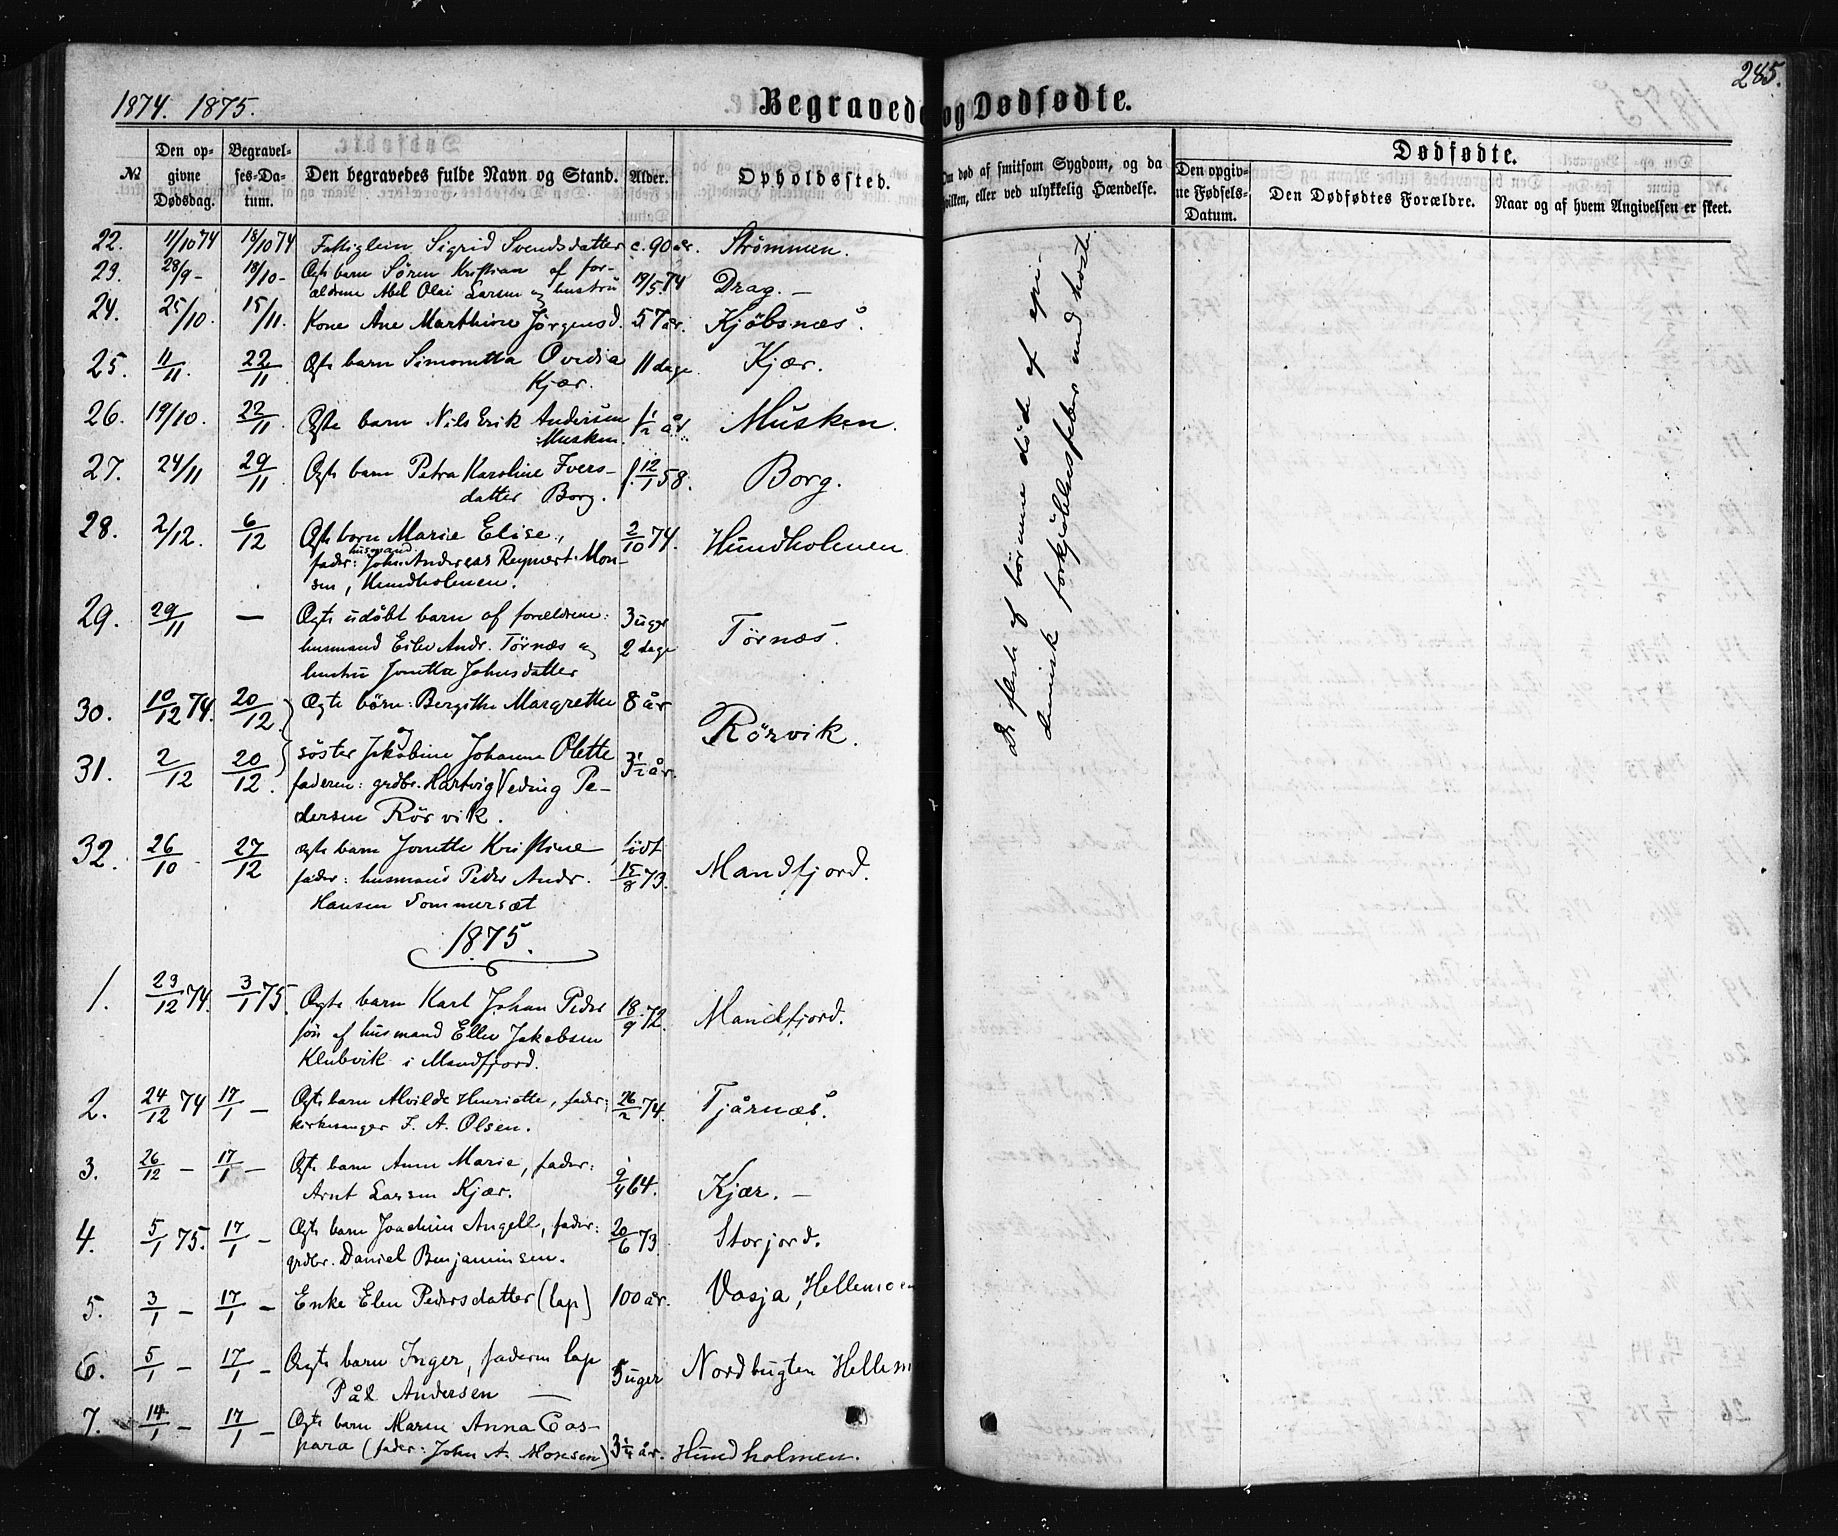 285.
1874. 1875.
Begravede og Dødfødte.
№
Den opgivne Dødsdag.
Begravelses-Datum.
Den begravedes fulde Navn og Stand.
Alder.
Opholdssted.
Om død af smitsom Sygdom, og da
hvilken, eller ved ulykkelig Hændelse.
Dødfødte.
Den opgivne Fødsels-Datum.
Den Dødfødtes Forældre.
Naar og af hvem Angivelsen er skeet.
22. 11/10 74 18/10 74 Fattiglem Sigrid Svendsdatter c. 90 år. Strømmen.
23. 28/9 - 18/10 - Ægte barn Søren Kristian af for-
ældrene Abel Olai Larsen og hustru 19/5 74 Drag. —
24. 25/10. 15/11. Kone Ane Marthine Jørgensd. 57 år. Kjøbsnæs.
25. 11/11. 22/11. Ægte barn Simonetta Ovidia
Kjær. 11 dage. Kjær.
26. 19/10. 22/11. Ægte barn Nils Erik Andersen
Musken. 1/2 år. Musken.
27. 24/11 29/11 Ægte barn Petra Karoline Ivers-
datter Borg. f. 12/1 58. Borg.
28. 2/12. 6/12 Ægte barn Marie Elise,
fader: husmand John Andreas Reymert Mon-
sen, Hundholmen. 2/10 74. Hundholmen
29. 29/11 — Ægte udøbt barn af forældrene:
husmand Eilev Andr. Tørnæs og
hustru Jonetta Johnsdatter
3 uger
2 dage
Tørnæs.
30. 10/12 74. 20/12 Ægte børn: Bergithe Margrethe 8 år
og
31. 2/12 20/12. søster Jakobine Johanna Olette 3 1/2 år.
Rörvik.
faderen: grdbr. Hartvig Veding Pe-
dersen Rörvik.
32. 26/10. 27/12 ægte barn Jonette Kristine
fader: husmand Peder Andr.
Hansen Sommersæt
født
15/8 73.
Mandfjord.
1875.
1. 23/12 74. 3/1 75. Ægte barn Karl Johan Peder
søn af husmand Eller Jakobsen
Klubvik i Mandfjord. 18/9 72. Mandfjord.
2. 24/12 74 17/1 — Ægte barn Alvilde Henriette, fader:
kirkesanger F. A. Olsen. 26/2 74. Tjårnæs.
3. 26/12 — 17/1 — Ægte barn Anne Marie, fader:
Arnt Larsen Kjær. 9/4 64. Kjær. —
4. 5/1 75. 17/1 — Ægte barn Joachim Angell, fader:
grdbr. Daniel Benjaminsen. 20/6 73. Storjord.
5. 3/1 — 17/1 — Enke Elen Pedersdatter (lap) 100 år. Vasja, Hellemoen
6. 5/1 — 17/1 — Ægte barn Inger, faderen lap
Pål Andersen — 5 uger Nordbugten Hellem
7. 14/1 — 17/1 — Ægte barn Maren Anna Cas-
para (fader: John A. Monsen) 3 1/4 år. Hundholmen.
De fleste af børnene døde af epi-
demisk forkjølelsesfeber med hoste